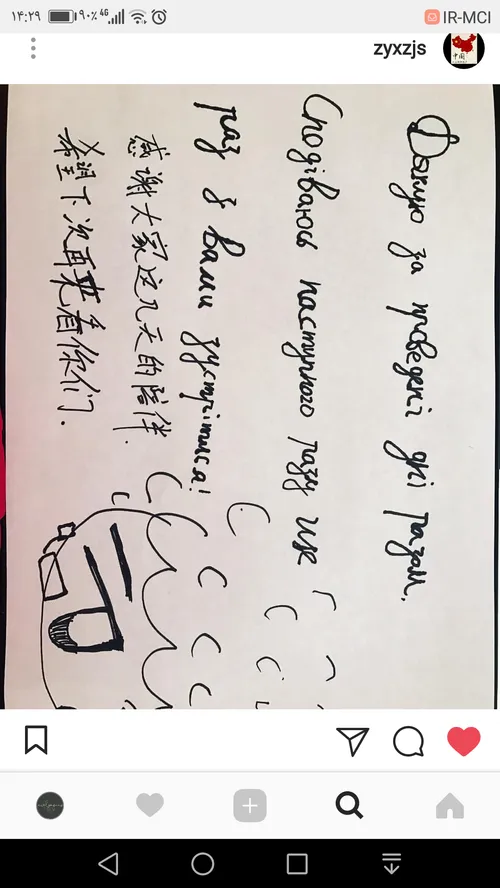 ۱۴:۲۹ ۹۰% 4G IR-MCI
zyxzjs
中国
Дякую за проведені дні разом.
Сподіваюсь наступного разу ще
раз з Вами зустрітися!
感谢大家这几天的陪伴.
希望下次再来看你们.